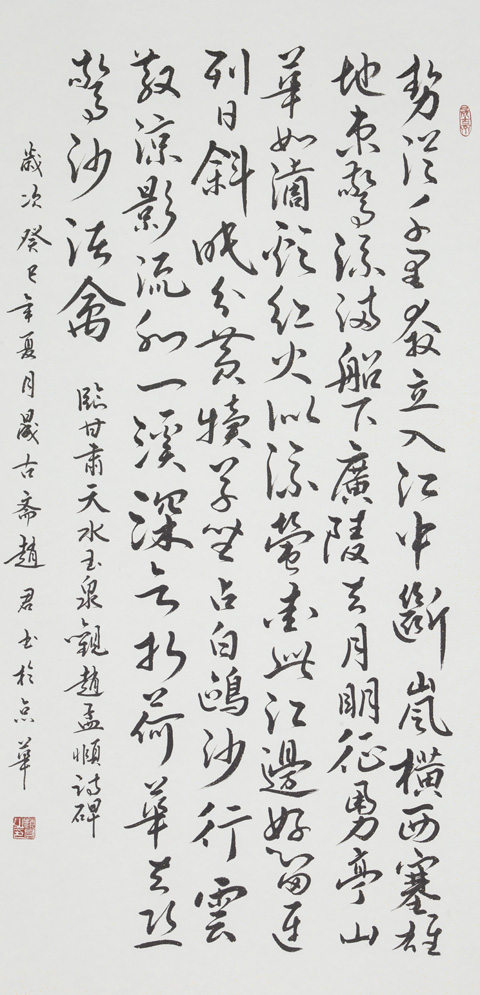 勢從千里奔立入江中斷嵐橫西塞雄
地束驚流滿船下廣陵去月明征勇亭山
華如紅火似流螢愛此江邊好留連
列日斜眠分黃犢草坐占白鷗沙行雲
散涼影流一溪深言折荷華去恐
驚沙活禽
臨甘肅天水玉泉觀趙孟順詩碑
歲次癸巳年夏月晟古斎趙君書於京華